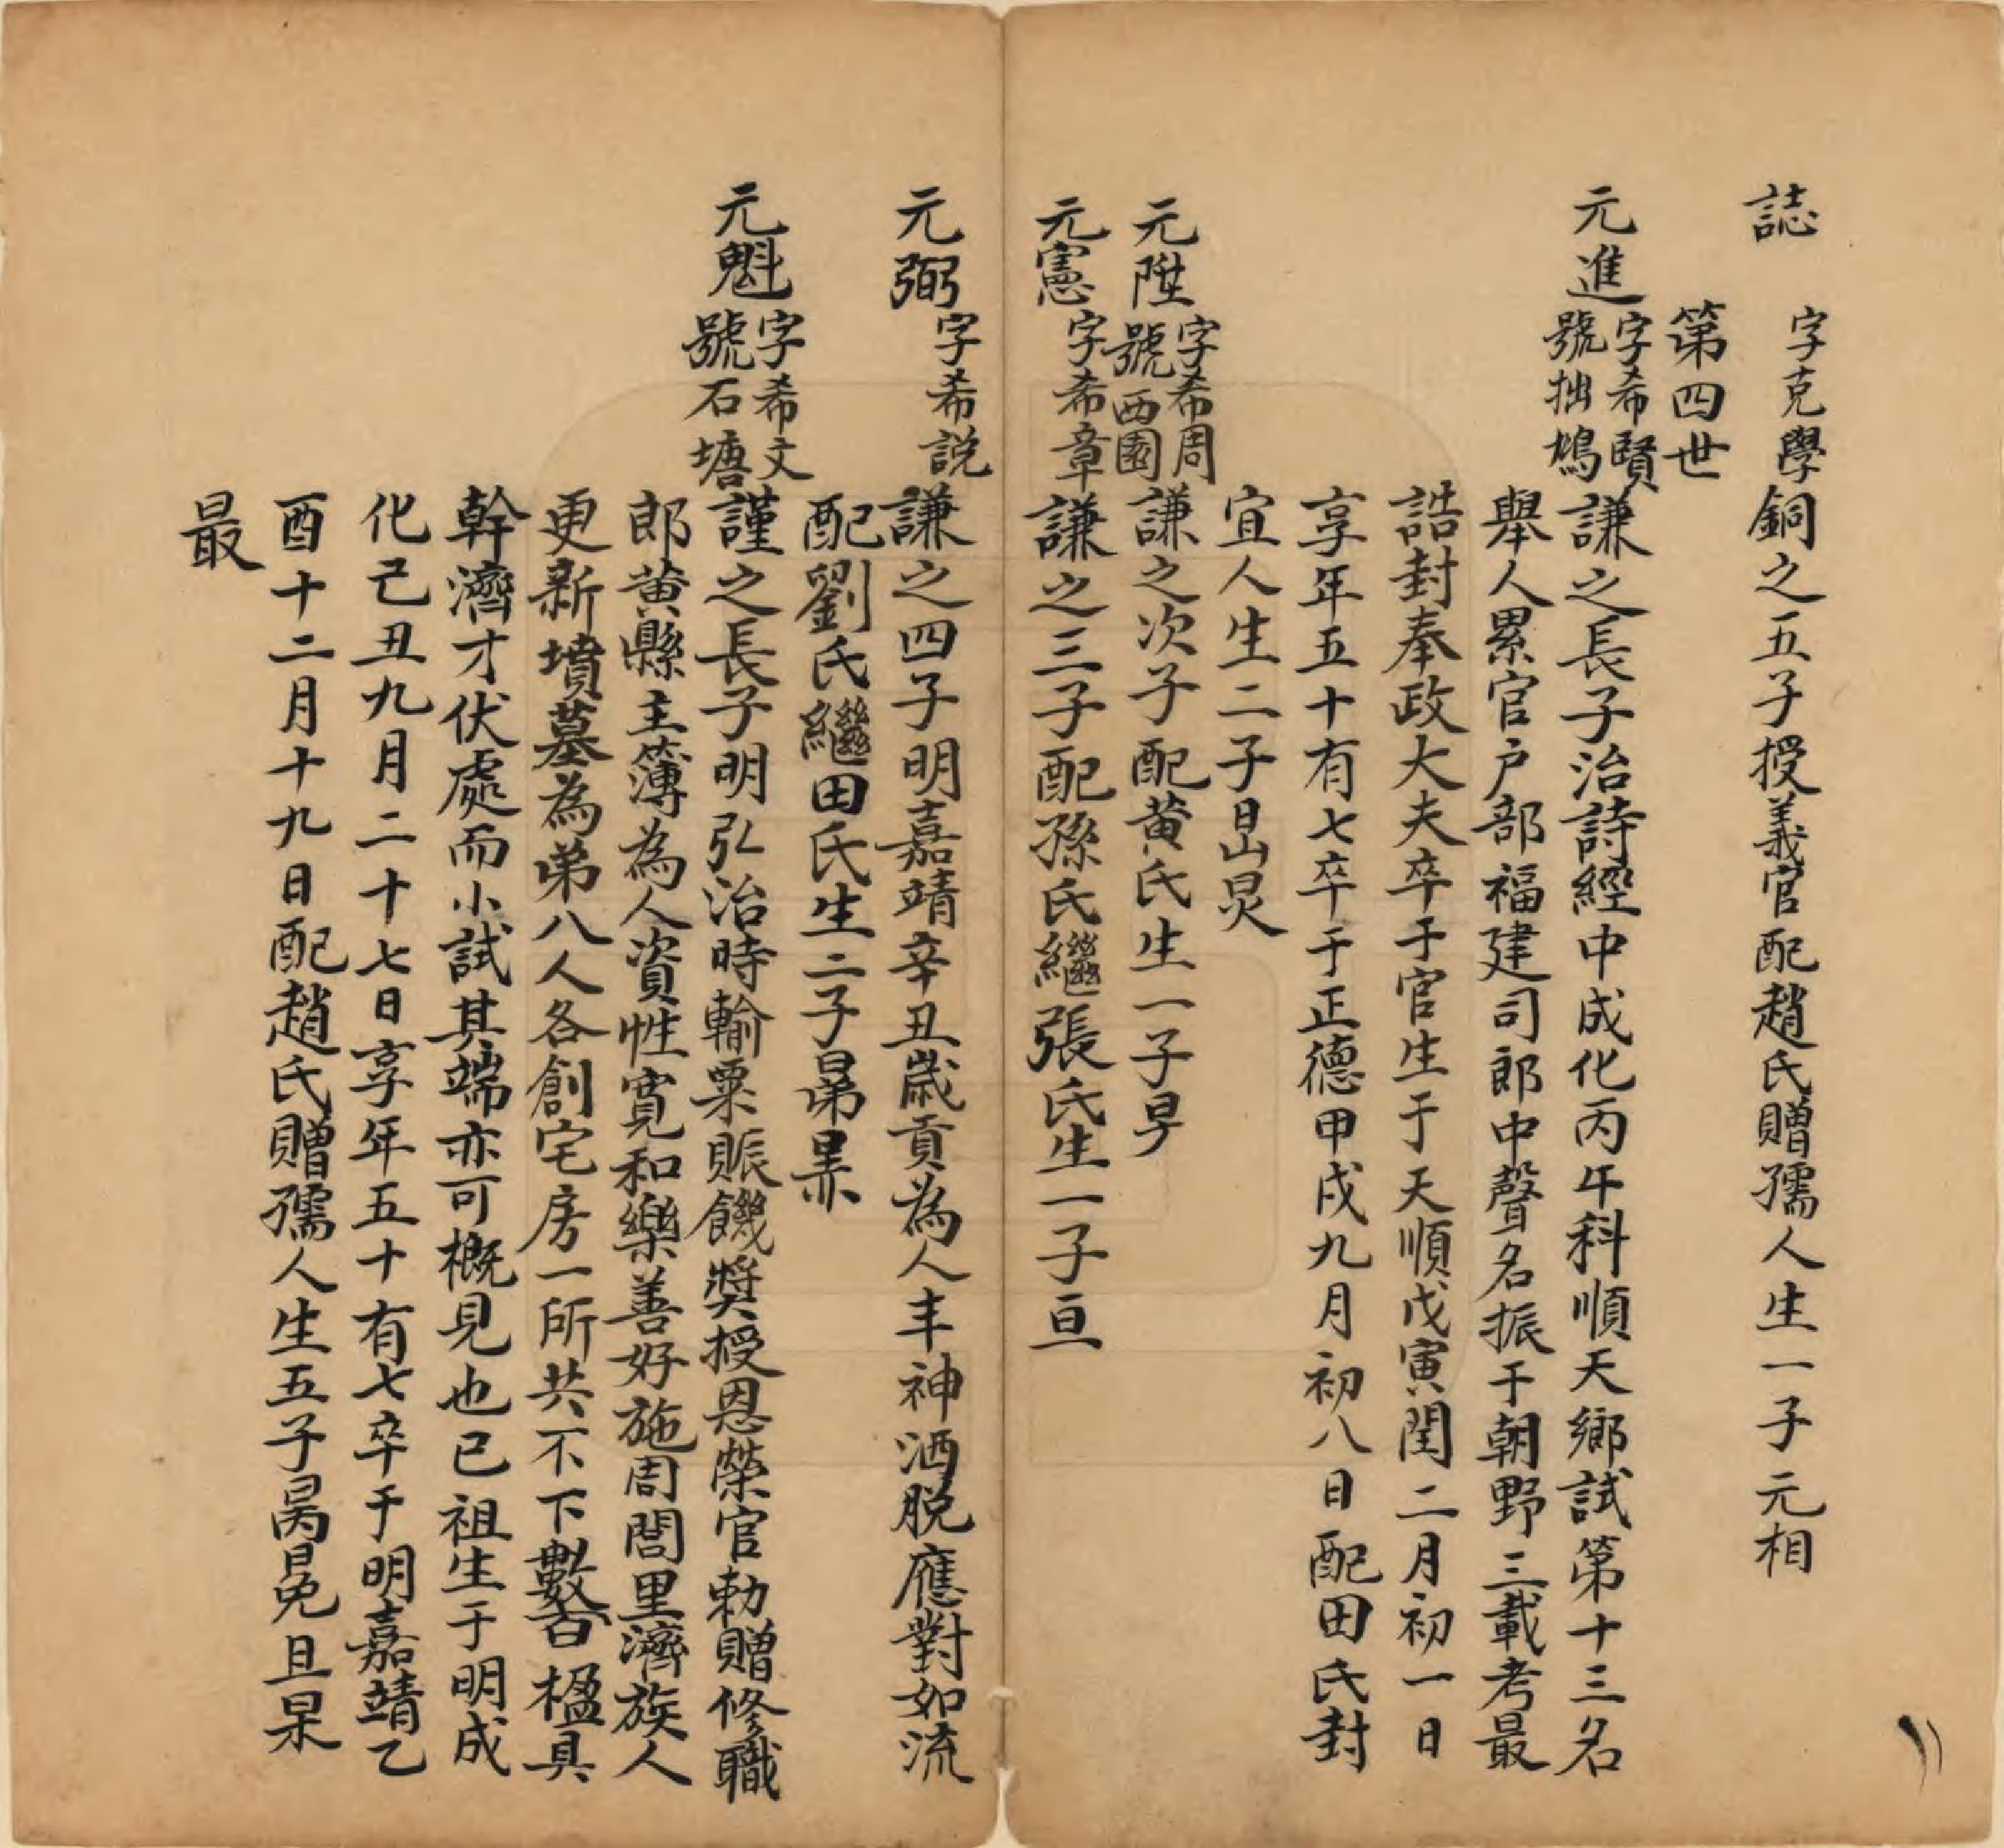 誌 字克學 銅之五子授義官配趙氏贈孺人生一子元相
第四世
元進 字希賢 號拙鳩 謙之長子治詩經中成化丙午科順天鄉試第十三名
舉人累官户部福建司郎中聲名振于朝野三載考最
誥封奉政大夫卒于官生于天順戊寅閏二月初一日
享年五十有七卒于正德甲戌九月初八日配田氏封
宜人生二子旵炅
元陞 字希周 號西園 謙之次子配黄氏生一子昇
元憲 字希章 謙之三子配孫氏繼張氏生一子亘
元弼 字希説 謙之四子明嘉靖辛丑歲貢為人丰神洒脱應對如流
配劉氏繼田氏生二子
元魁 字希文 號石塘 謹之長子明弘治時輸粟賑饑奬授恩榮官勅贈修職
郎黄縣主簿為人資性寛和樂善好施周閭里濟族人
更新墳墓為弟八人各創宅房一所共不下數百楹具
幹濟才伏處而小試其端亦可概見也已祖生于明成
化己丑九月二十七日享年五十有七卒于明嘉靖乙
酉十二月十九日配趙氏贈孺人生五子昺晃旦杲
最